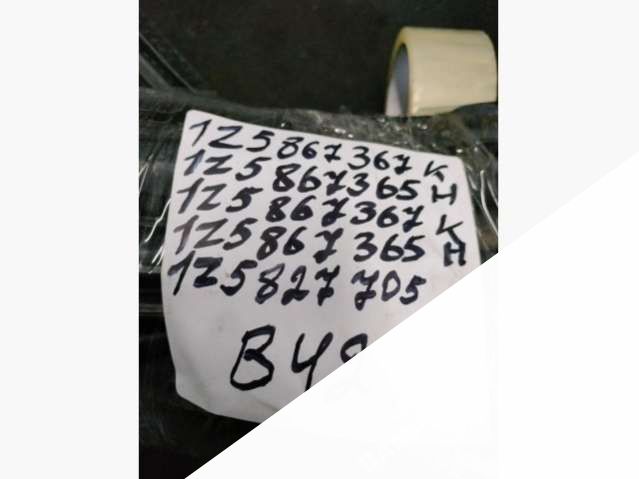 1Z5 867 367 K
1Z5 867 365 H
1Z5 867 367 K
1Z5 867 365 H
1Z5 827 705